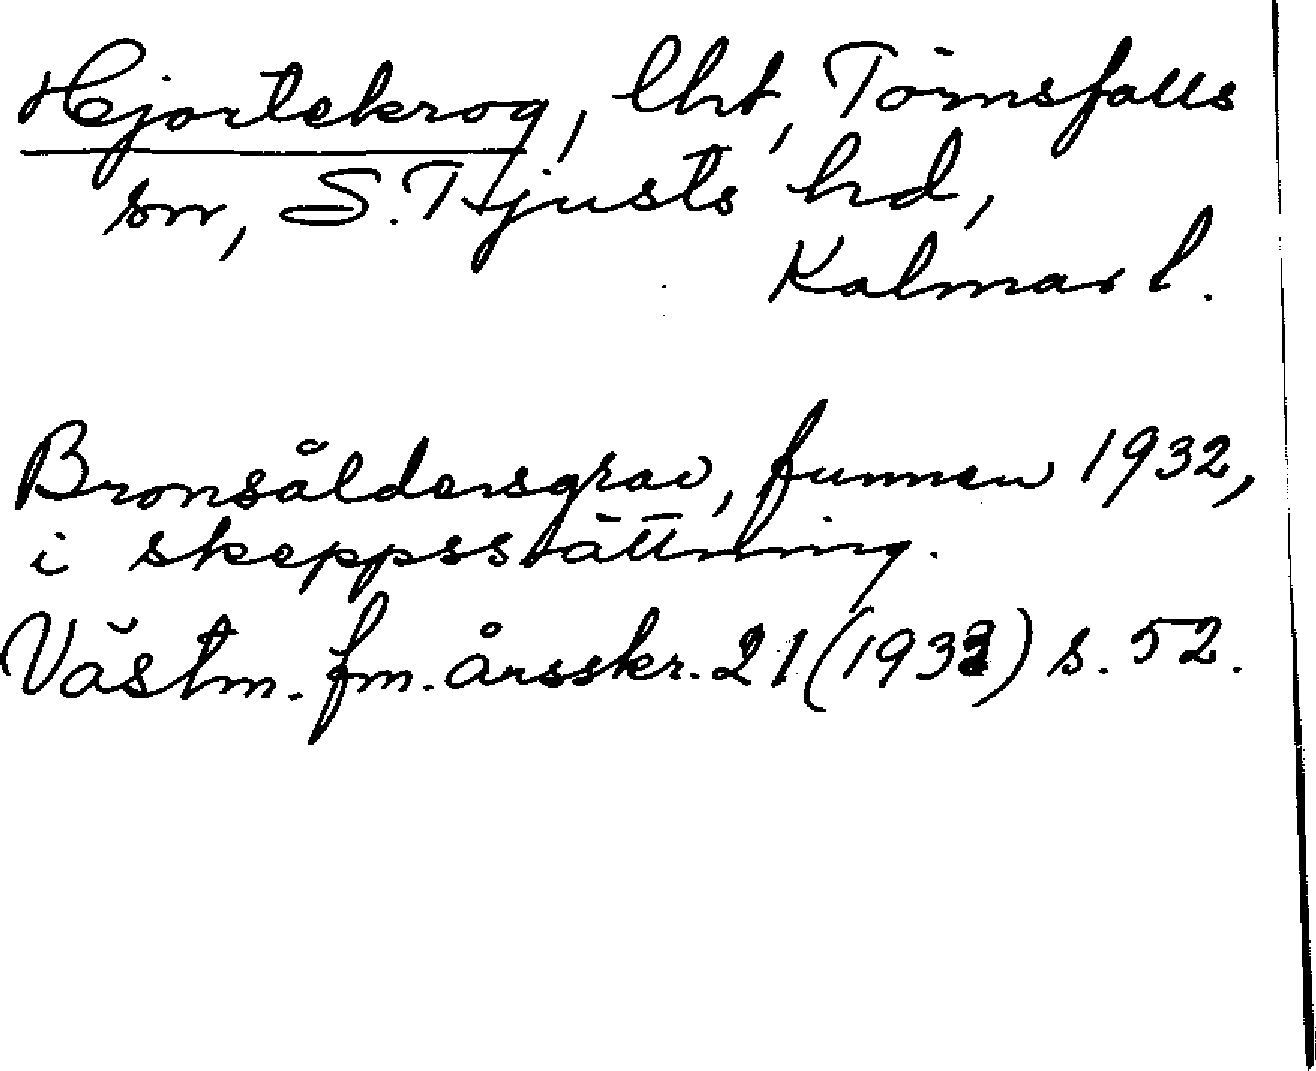 Hjortekrog, lht, Törnsfalls
sn, S. Tjusts hd,
Kalmar l.
Bronsåldersgrav, funnen 1932,
i skeppssättning.
Västm. fm. årsskr. 21 (1933) s. 52.